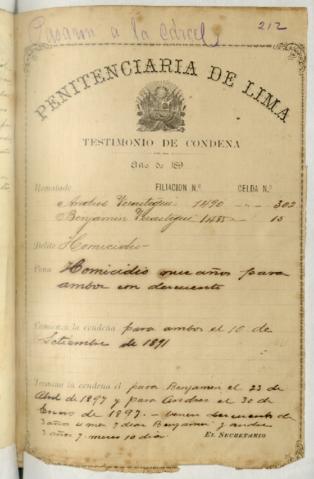 Pasaron a la Cárcel 212
PENITENCIARIA DE LIMA
TESTIMONIO DE CONDENA
Año de 189
Rematado FILIACION N.º CELDA N.º
Andres Verastegui 1490 - - 302
Benjamin Verastegui 1485 - 15
Delito Homicidio
Pena Homicidio nueve años para
ambos con descuento
Comienza la condena para ambos el 10 de
Setiembre de 1891
Termina la condena el para Benjamin el 23 de
Abril de 1897 y para Andres el 30 de
Enero de 1897. - descuento de
3 años 4 mes 7 dias Benjamin y Andres
3 años 7 meses 10 dias
EL SECRETARIO